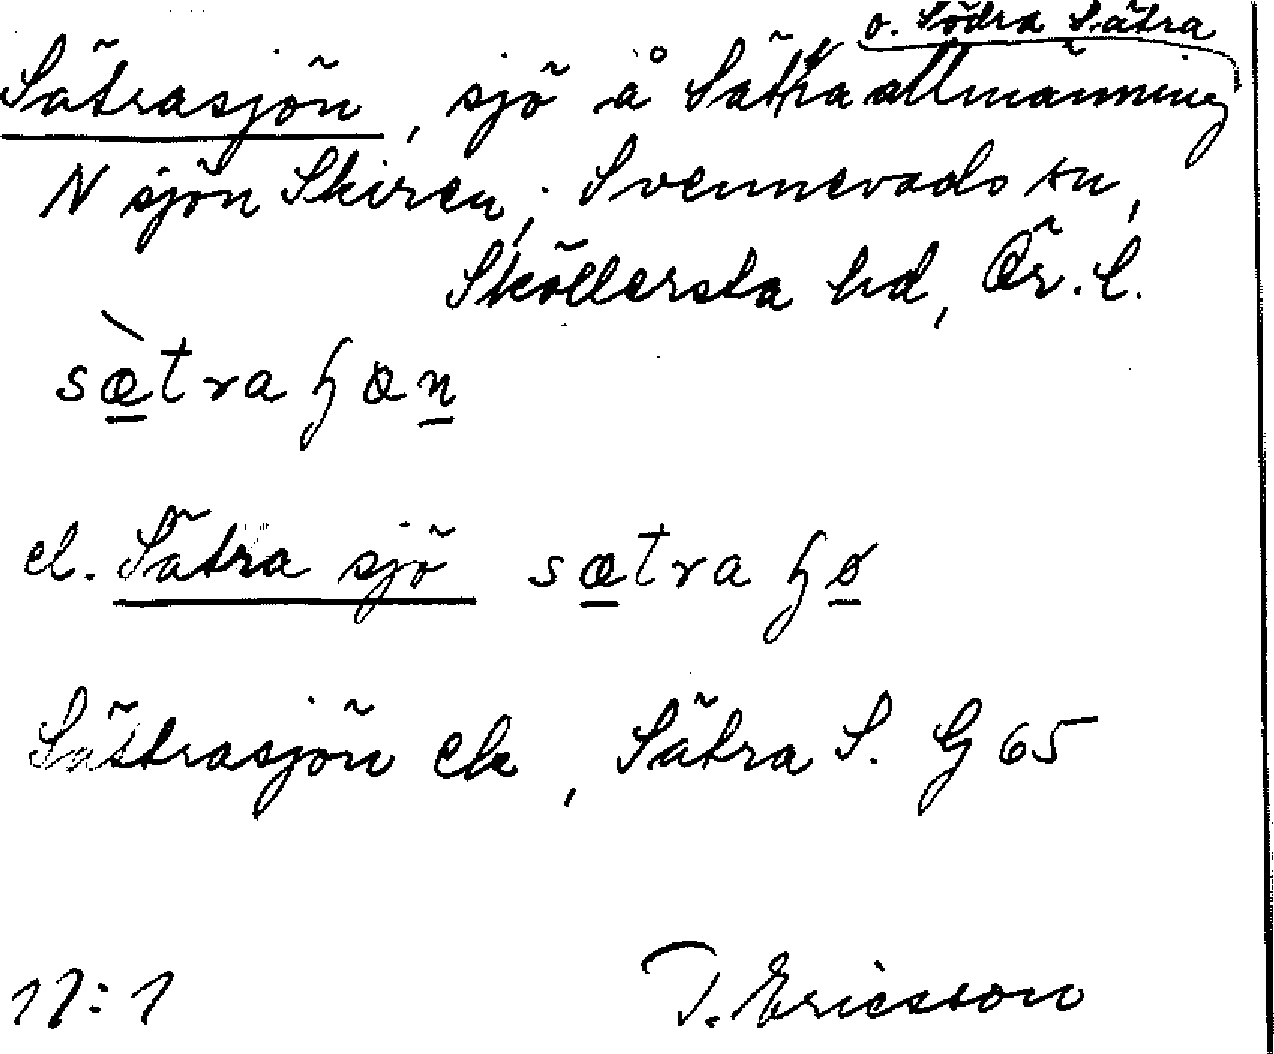 o. Södra Sätra
Sätrasjön, sjö å Sätra allmänning
N sjön Skiren; Svennevads sn,
Sköllersta hd, Ör. l.
sætra ɧœn
el. Sätra sjö sætra ɧø
Sättrasjön ek, Sätra S. G 65
17:1
T. Ericsson